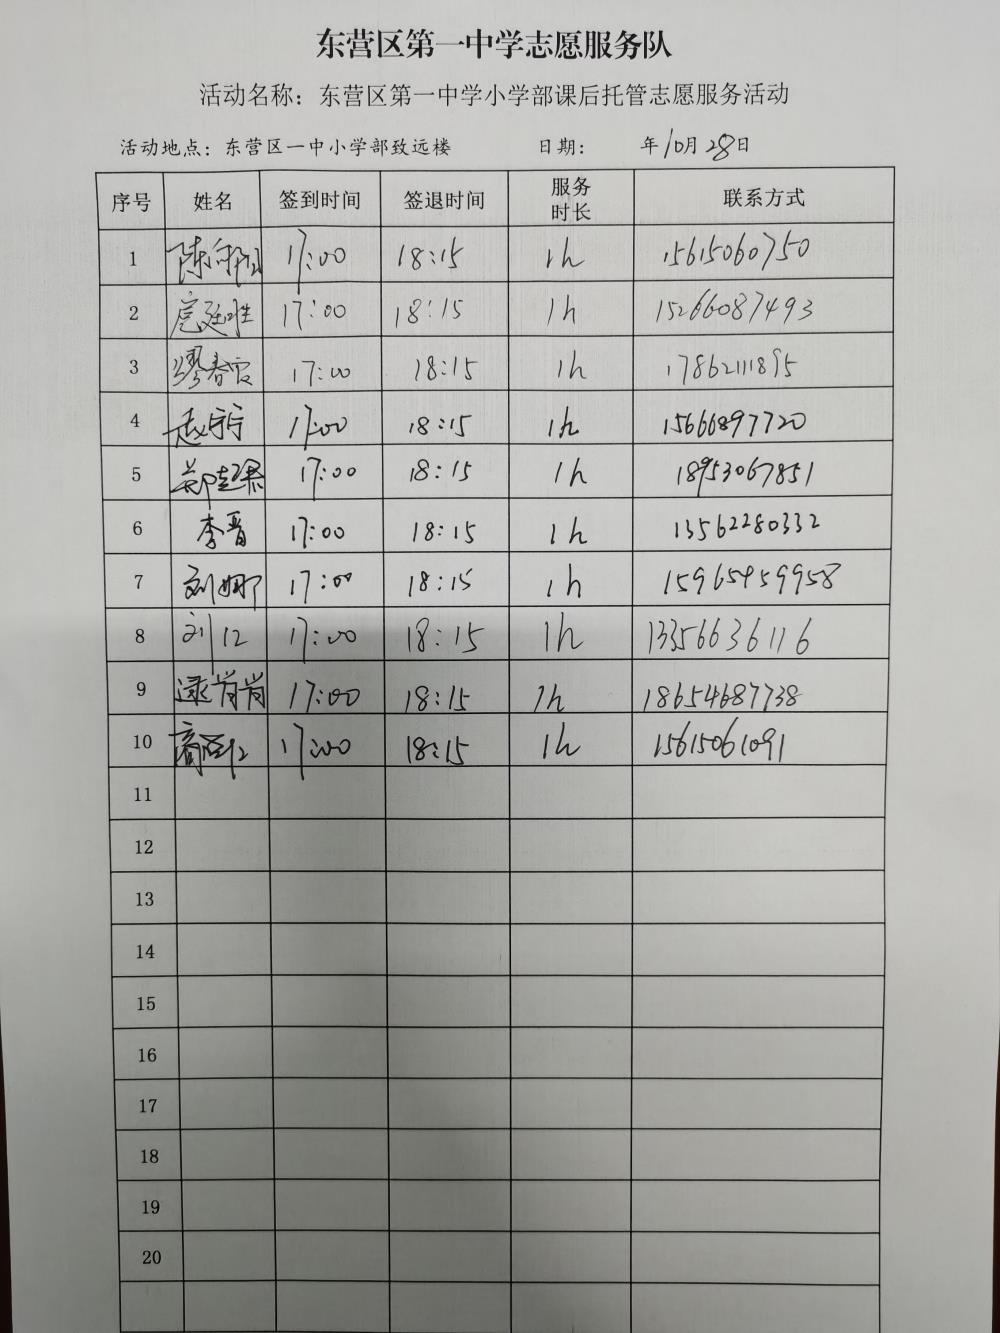 东营区第一中学志愿服务队
活动名称：东营区第一中学小学部课后托管志愿服务活动
活动地点：东营区一中小学部致远楼 日期： 年10月28日
序号 姓名 签到时间 签退时间 服务时长 联系方式
1 17:00 18:15 1h 15615060750
2 17:00 18:15 1h 15266087493
3 缪春 17:00 18:15 1h 17862111895
4 赵宁宁 17:00 18:15 1h 15666897720
5 郑 17:00 18:15 1h 18953067851
6 李晋 17:00 18:15 1h 13562280332
7 刘娜 17:00 18:15 1h 15965959958
8 刘仁 17:00 18:15 1h 13356636116
9 逯肖肖 17:00 18:15 1h 18654687738
10 商 17:00 18:15 1h 15615061091
11
12
13
14
15
16
17
18
19
20